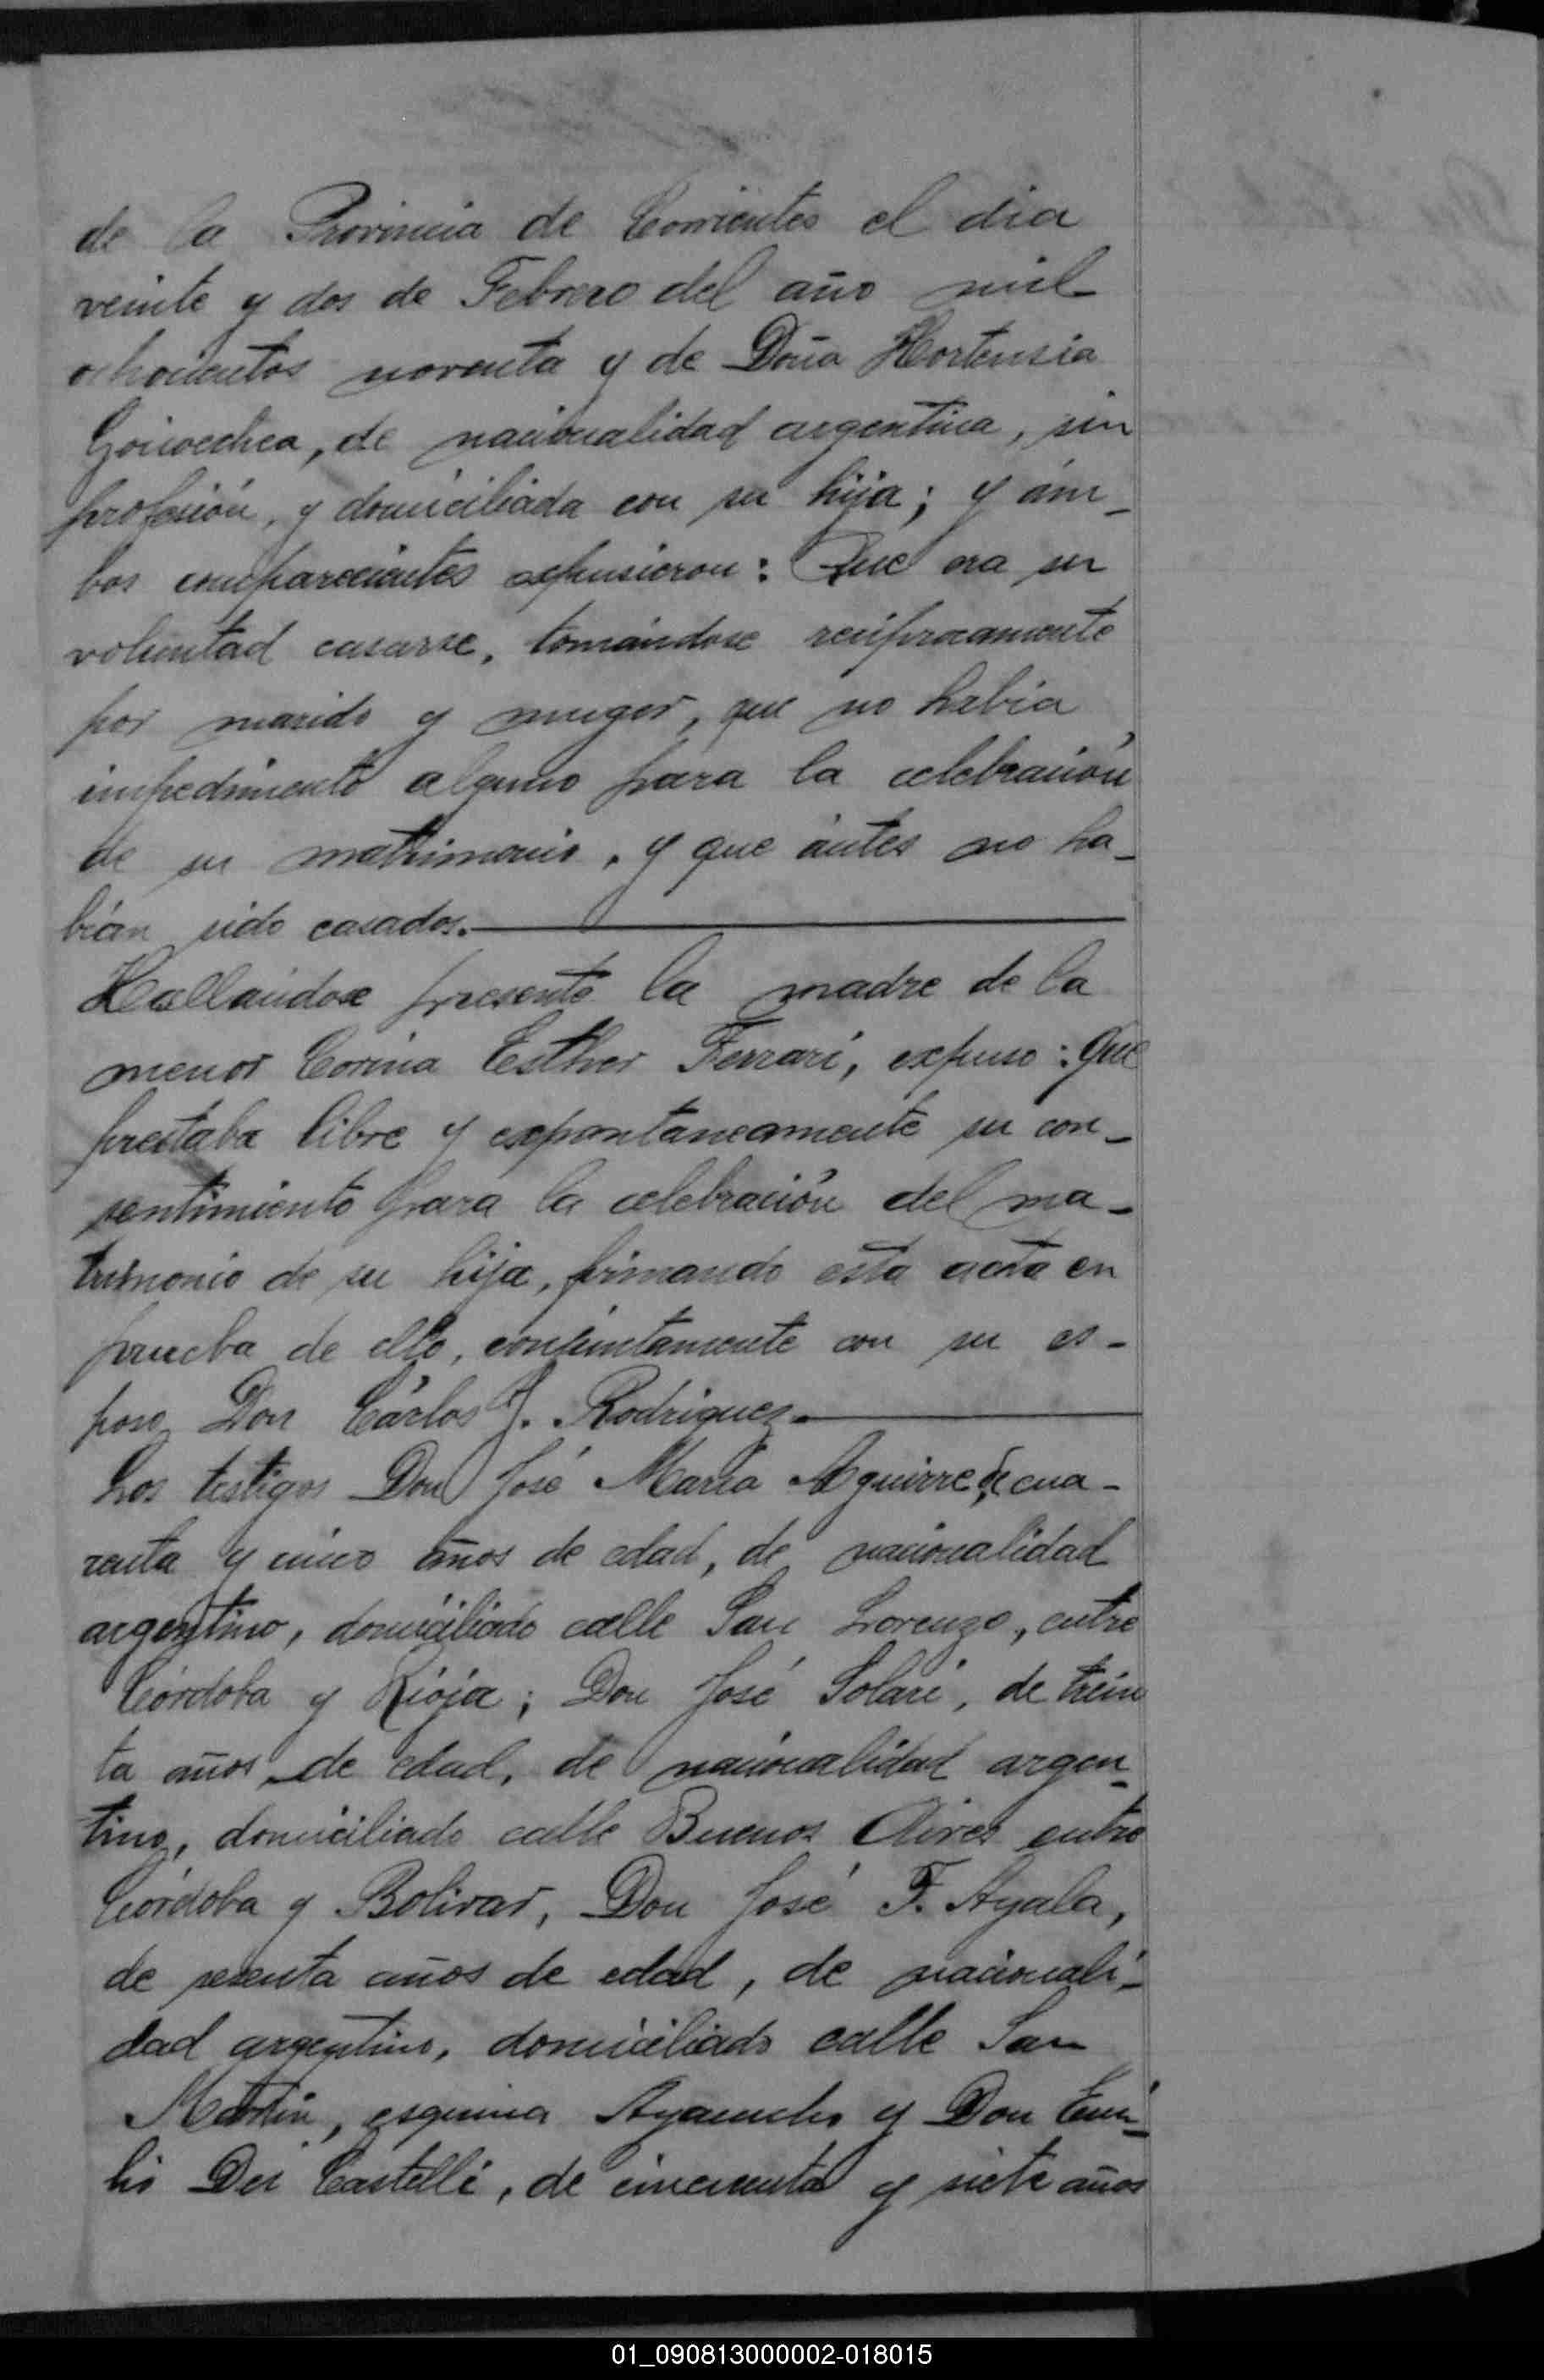 de la Provincia de Corrientes el dia
veinte y dos de Febrero del año mil
ochocientos noventa y de Doña Hortensia
Goicoechea, de nacionalidad argentina, sin
profesión, y domiciliada con su hija; y ám_
bos comparecientes expusieron: Que era su
voluntad casarse, tomándose reciprocamente
por marido y muger, que no habia
impedimento alguno para la celebración
de su matrimonio, y que ántes no ha_
bían sido casados.
Hallándose presente la madre de la
menor Corina Esther Ferrari, expuso: Que
prestaba libre y expontaneamente su con_
sentimiento para la celebración del ma_
trimonio de su hija, firmando esta acta en
prueba de ello, conjuntamente con su es-
poso Don Cárlos J. Rodriguez.
Los testigos Don José María Aguirre, de cua-
renta y cinco años de edad, de nacionalidad
argentino, domiciliado calle San Lorenzo, entre
Córdoba y Rioja; Don José Solari, de trein
ta años de edad, de nacionalidad argen_
tino, domiciliado calle Buenos Aires entre
Córdoba y Bolivar, Don José F. Ayala,
de sesenta años de edad, de nacionali_
dad argentino, domiciliado calle San
Martin, esquina Ayacucho y Don Emi_
lio Dei Castelli, de cincuenta y siete años
01_090813000002-018015